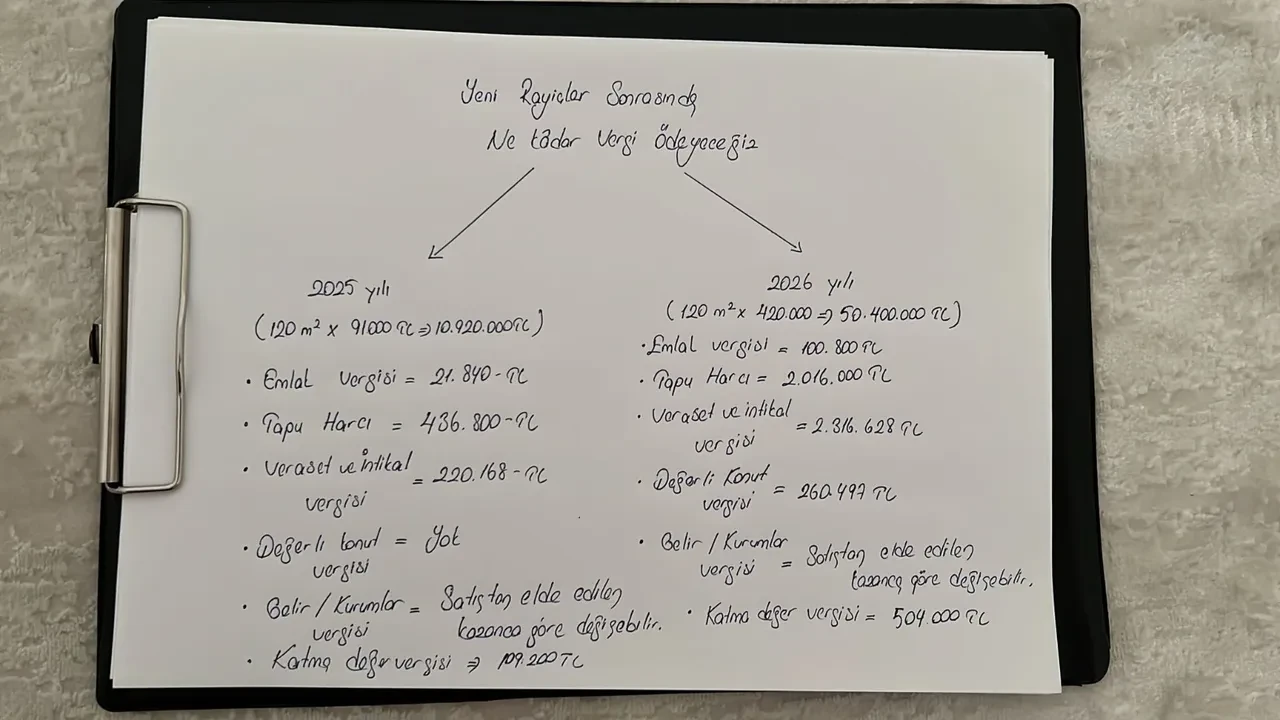 Yeni Rayiçler Sonrasında
Ne kadar Vergi Ödeyeceğiz
2025 yılı
(120 m² x 91000 TL => 10.920.000TL)
• Emlak vergisi = 21.840-TL
• Tapu Harcı = 436.800-TL
• Veraset ve intikal
vergisi = 220.168-TL
• Değerli konut
vergisi = Yok
• Gelir / Kurumlar
vergisi = Satıştan elde edilen
kazanca göre değişebilir.
• Katma değer vergisi => 109.200 TL
2026 yılı
(120 m² x 420.000 => 50.400.000 TL)
• Emlak vergisi = 100.800 TL
• Tapu Harcı = 2.016.000 TL
• Veraset ve intikal
vergisi = 2.316.628 TL
• Değerli Konut
vergisi = 260.497 TL
• Gelir / Kurumlar
vergisi = Satıştan elde edilen
kazanca göre değişebilir.
• Katma değer vergisi = 504.000 TL